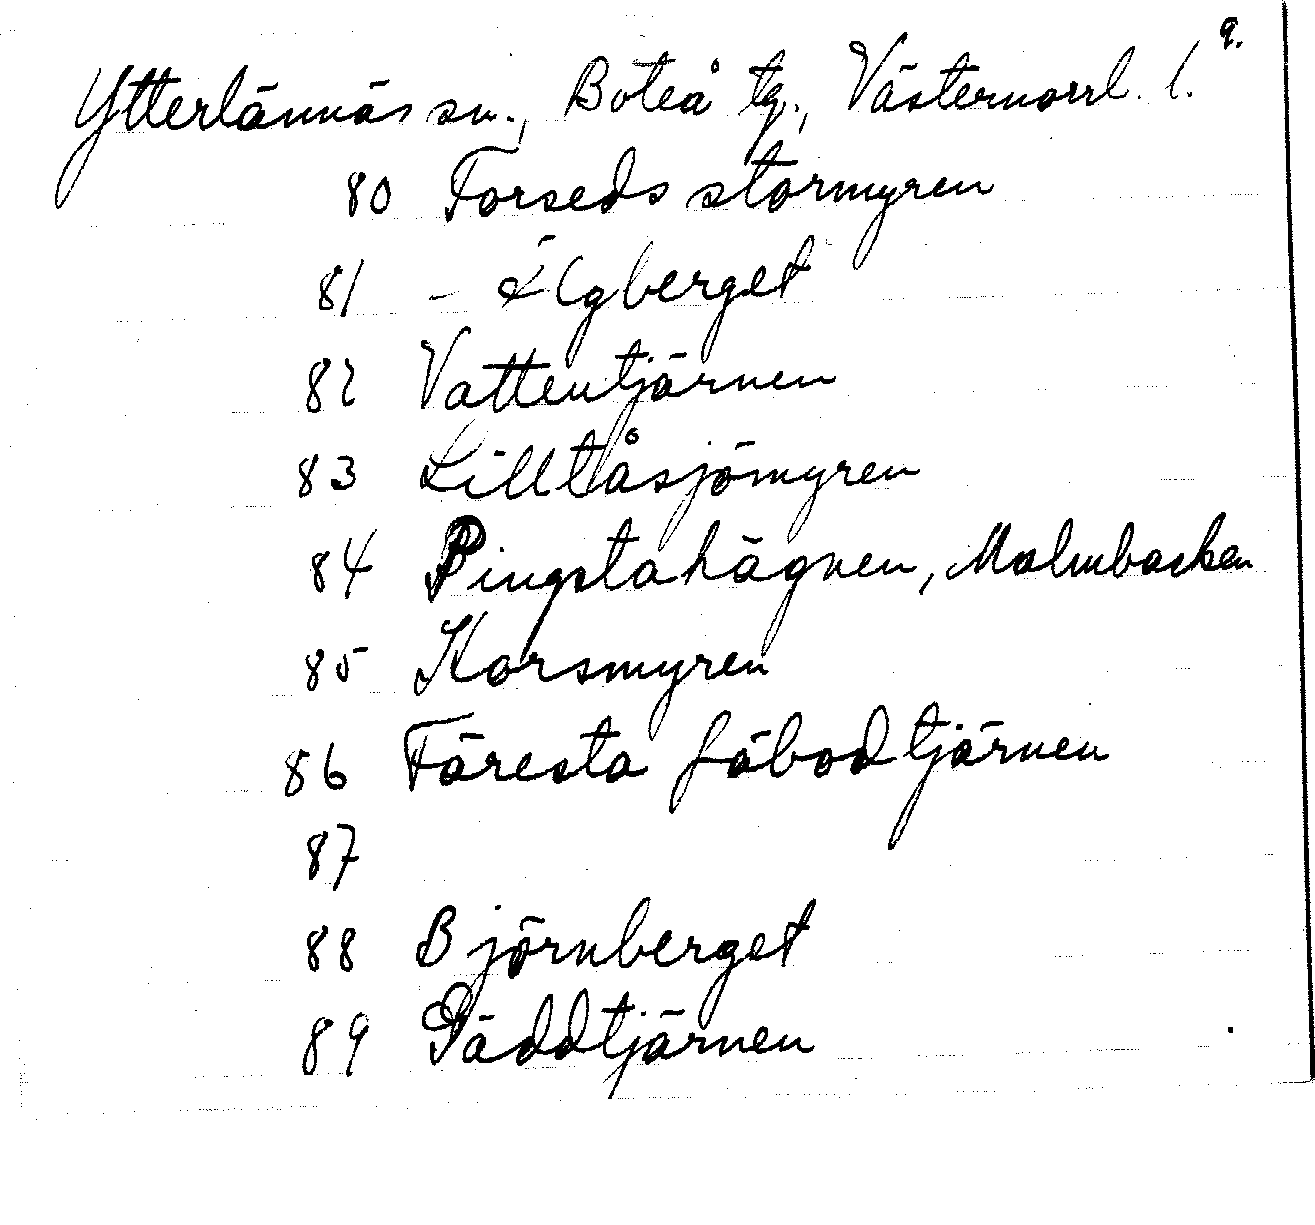 9.
Ytterlännäs sn., Boteå tg., Västernorrl. l.
80 Forseds stormyren
81 – Älgberget
82 Vattentjärnen
83 Lilltåsjömyren
84 Pingstahägnen, Malmbacken
85 Korsmyren
86 Färesta fäbodtjärnen
87
88 Björnberget
89 Gäddtjärnen